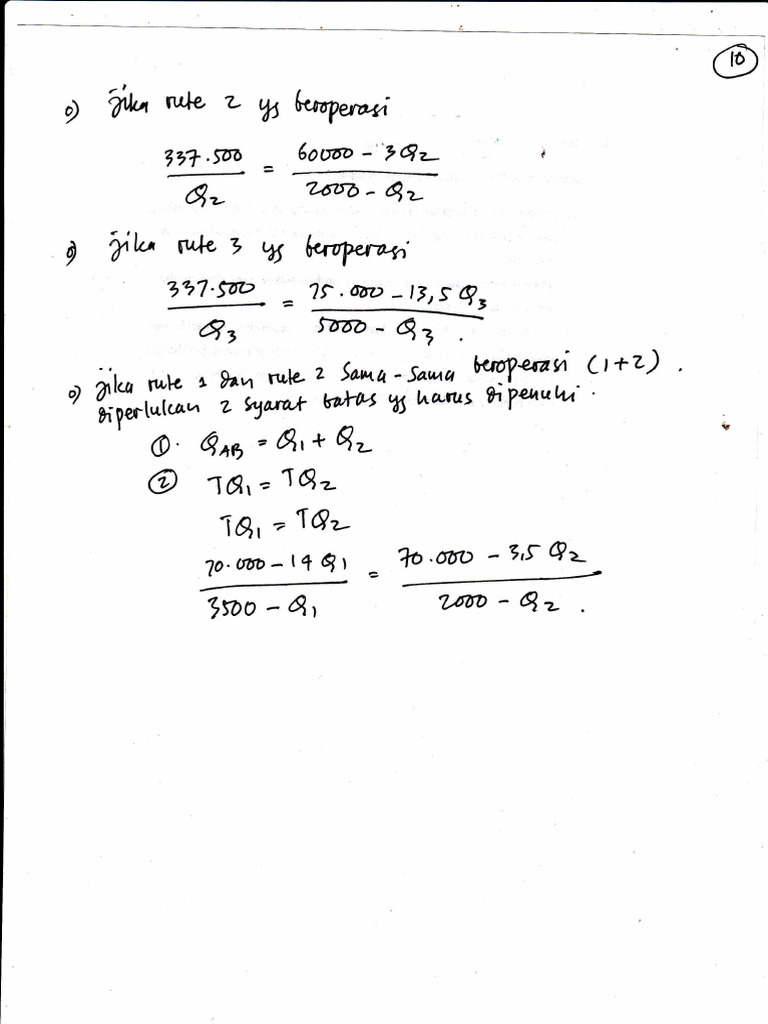 10
o) jika rute 2 yg beroperasi
337.500 / Q2 = 60000 - 3Q2 / 2000 - Q2
o) jika rute 3 yg beroperasi
337.500 / Q3 = 75.000 - 13,5 Q3 / 5000 - Q3 .
o) jika rute 1 dan rute 2 sama-sama beroperasi (1+2) .
diperlukan 2 syarat batas yg harus dipenuhi .
①. QAB = Q1 + Q2
② TQ1 = TQ2
TQ1 = TQ2
70.000 - 14 Q1 / 3500 - Q1 = 70.000 - 3,5 Q2 / 2000 - Q2 .